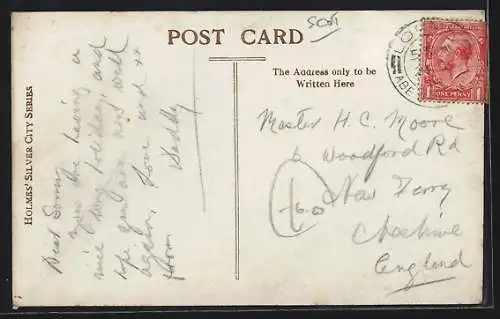 Scot
POST CARD
The Address only to be
Written Here
HOLMES' SILVER CITY SERIES
LO
ABE
ONE PENNY
1 1
Dear
You are having a
nice long holiday, and
hope you are now well
again, love and xx
from
Daddy
Master H. C. Moore
6 Woodford Rd
New Ferry
Cheshire
England